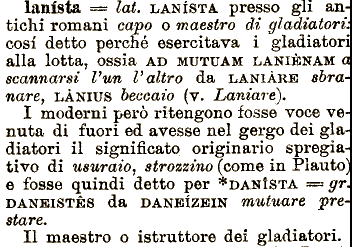 lanísta = lat. LANÍSTA presso gli an-
tichi romani capo o maestro di gladiatori:
cosí detto perché esercitava i gladiatori
alla lotta, ossia AD MUTUAM LANIÈNAM a
scannarsi l'un l'altro da LANIÀRE sbra-
nare, LÀNIUS beccaio (v. Laniare).
I moderni però ritengono fosse voce ve-
nuta di fuori ed avesse nel gergo dei gla-
diatori il significato originario spregia-
tivo di usuraio, strozzino (come in Plauto)
e fosse quindi detto per *DANÍSTA = gr.
DANEISTÊS da DANEÍZEIN mutuare pre-
stare.
Il maestro o istruttore dei gladiatori.